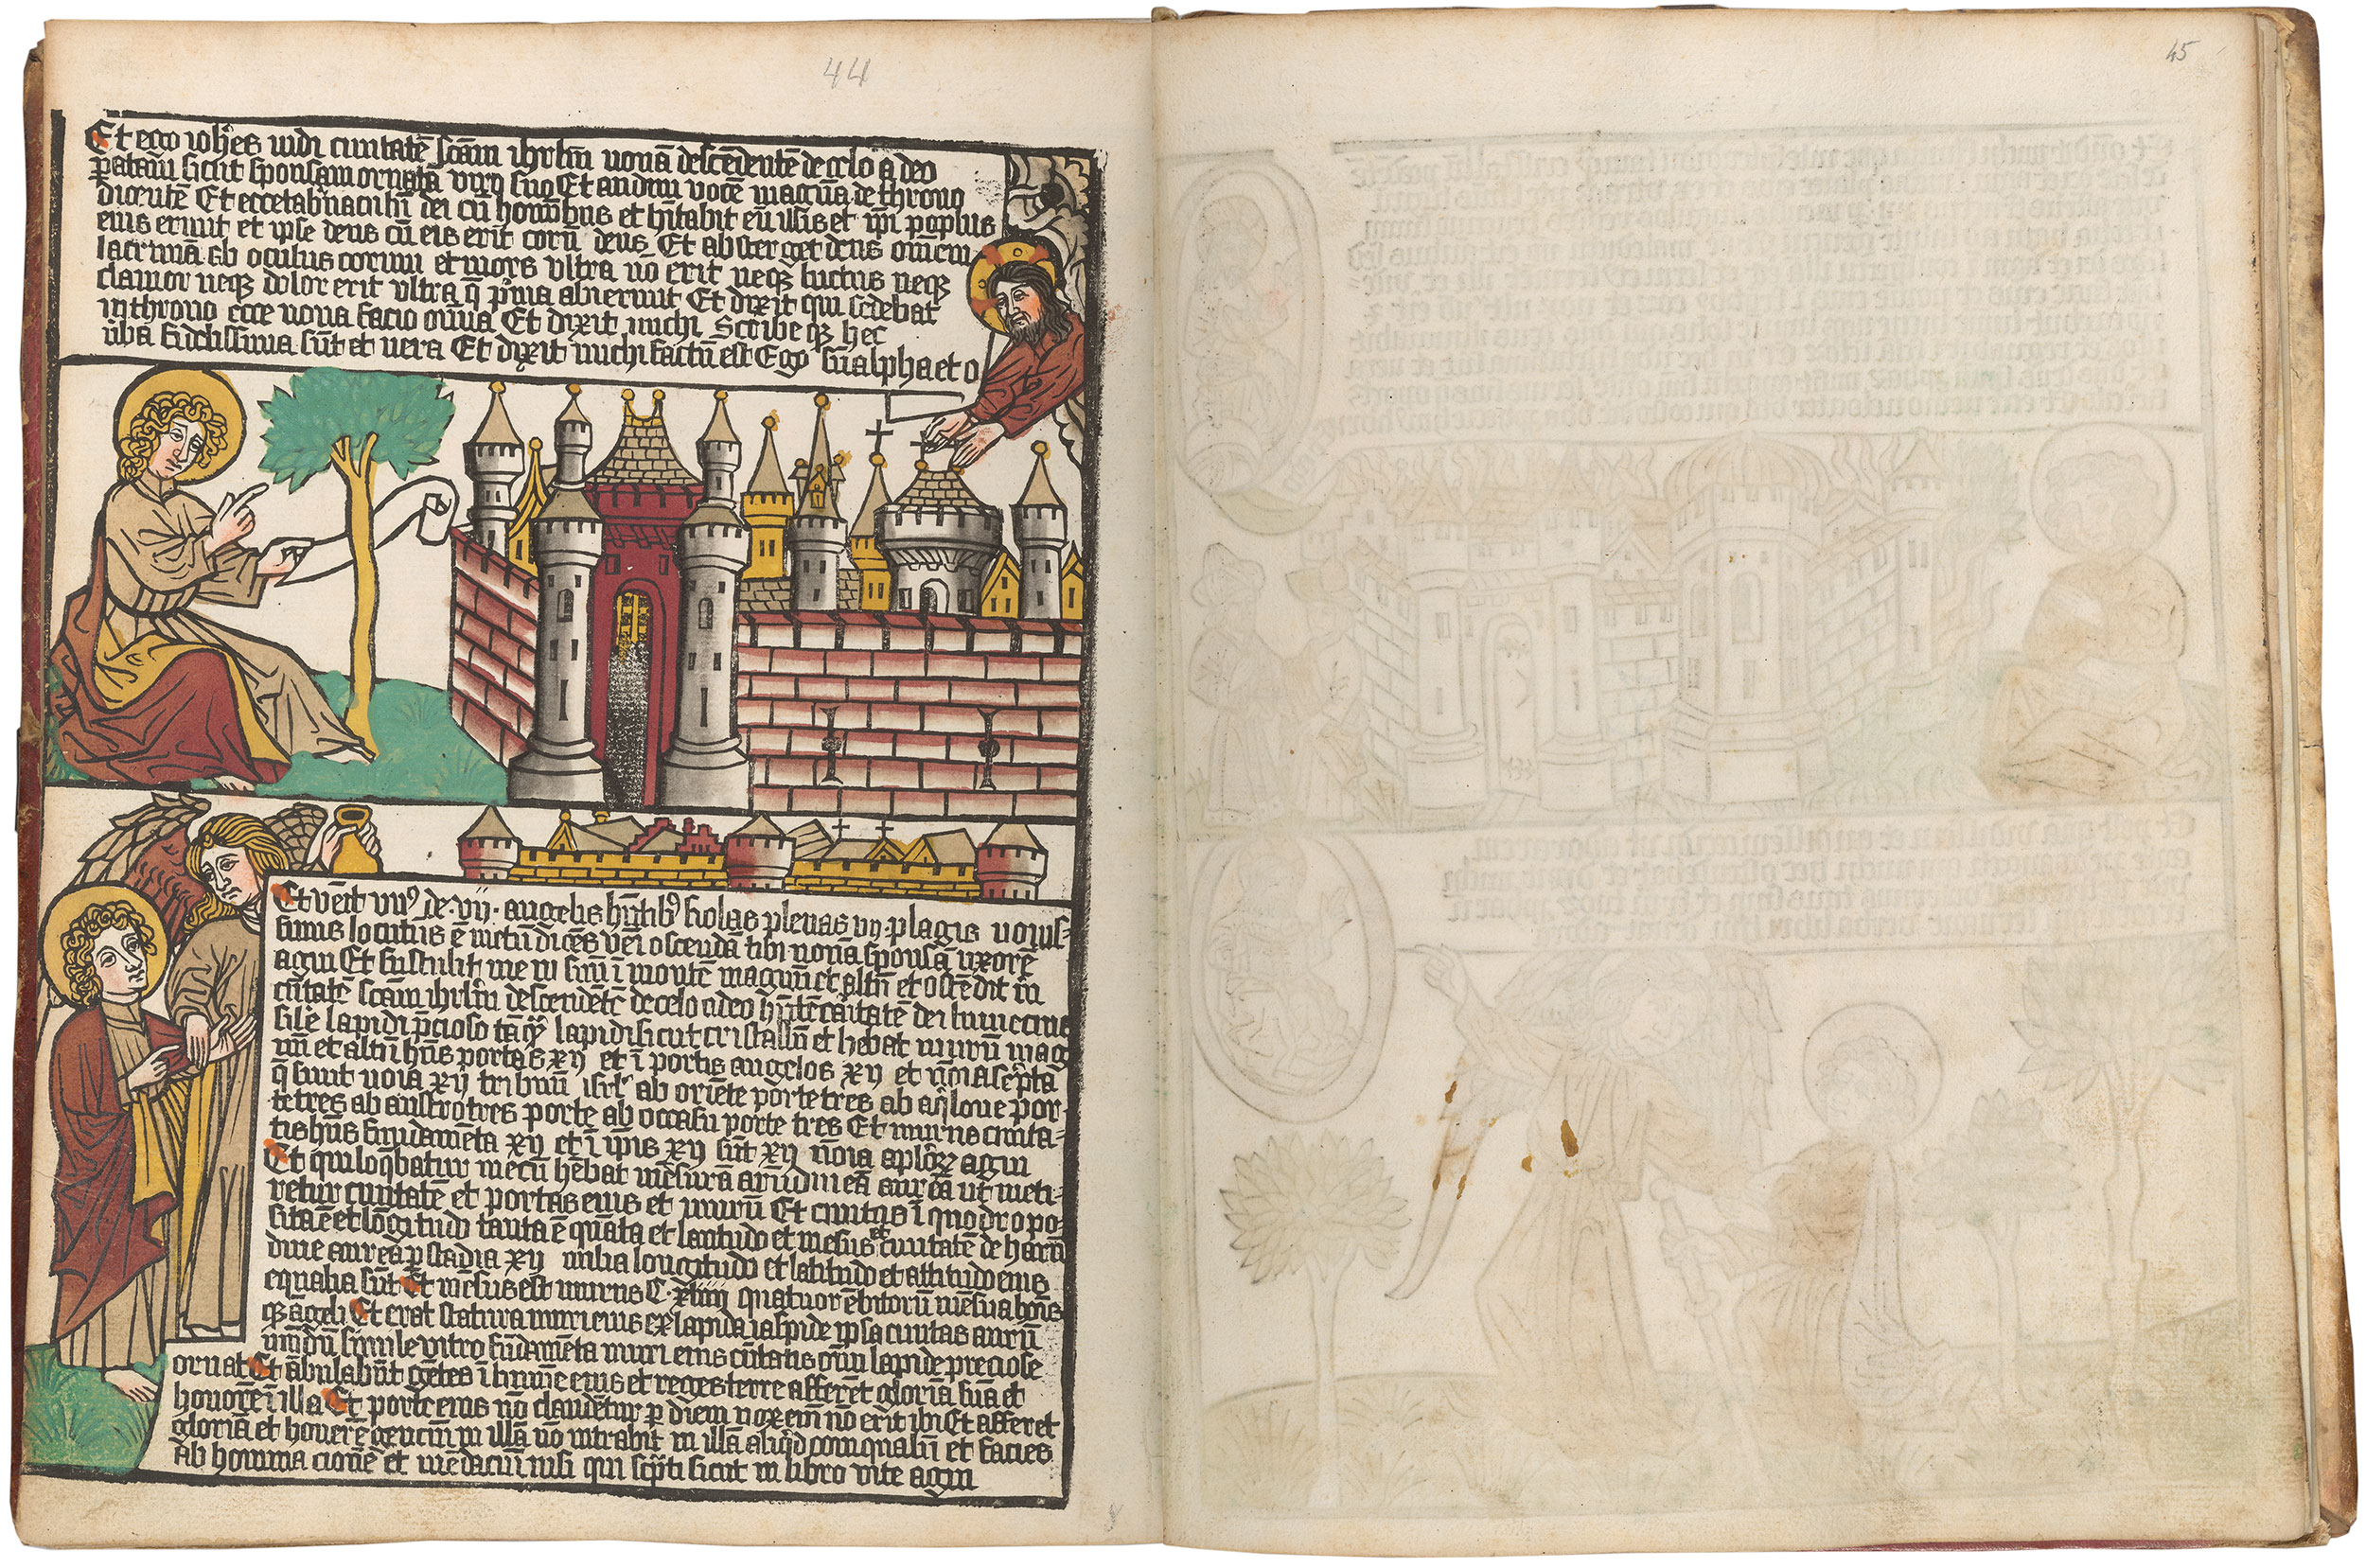 44
45
Et ego ioh̄es uidi ciuitatē sc̄am ihrl̄m nouā descēdentē de celo a deo
p̄atam̄ sicut sponsam ornatā viro suo Et audiui vocē magnā de throno
dicentē Et ecce tab̄naculū dei cū hominib̄us et hītabit cū illis et ip̄i populus
eius erunt et ipse deus cū eis erit eorū deus Et absterget deus om̄em
lacrimā ab oculus eorum et mors vltra nō erit neqꝫ luctus neqꝫ
clamor neqꝫ dolor erit vltra q̄ p̄ma abierunt Et dixit qui sedebat
in throno ecce noua facio om̄ia Et dixit michi Scribe qꝫ hec
v̄ba fidelissima sūt et uera Et dixit michi factū est Ego sū alpha et o
Et venit vnꝰ de vij angelis hn̄tibꝰ fiolas plenas vij plagis nouis-
simis locutus ē mecū dicēs veni ostendā tibi nouā sponsā uxorē
agni Et sustulit me in spū ī montē magnū et altū et ostēdit m̄
ciūtatē sc̄am ihrl̄m descendētē de celo adeo hn̄tē caritatē dei lumē eius
silē lapidi p̄cioso tāqꝫ lapidi sicut cristallū et hebat murū mag
nū et altū hn̄s portas xij et ī portis angelos xij et nōīa sc̄pta
q̄ sunt noīa xij tribuū isrl̄ ab oriēte porte tres ab aq̄lone por-
te tres ab austro tres porte ab occasu porte tres Et murus ciuita-
tis hn̄s fūdamēta xij et ī ip̄is xij sūt xij nōīa aplōꝝ agni
Et qui loq̄batur mecū hēbat mēsurā arūdineā aureā ut meti-
retur ciuitatē et portas eius et murū Et ciuitas ī quodro po-
sita ē et lōgitudo tanta ē quāta et latitudo et mesus et ciuitatē de harū
dine aurea p̄ stadia xij milia longitudo et latitudo et altitudo eius
equalia sūt Et mēsus est murus C xliiij quatuor cubitorū mēsura hoīs
qꝫ āgeli Et erat statura muri eius ex lapida iaspide ipsa ciuitas aurū
mūdū simile vitro fūdamēta muri eius ciūtatis om̄i lapide preciose
ornat Et ābulabūt gētes ī lumīe eius et reges terre afferēt gloriā suā et
honorē ī illa Et porte eius nō claudētur p̄ diem nox em̄ nō erit ibi Et afferet
gloriā et honorē genciū in illā nō intrabit in illā aliq̄d coinquatū et facies
Ab homina cionē et mēdaciū nisi qui sc̄pti sicut in libro vite agni